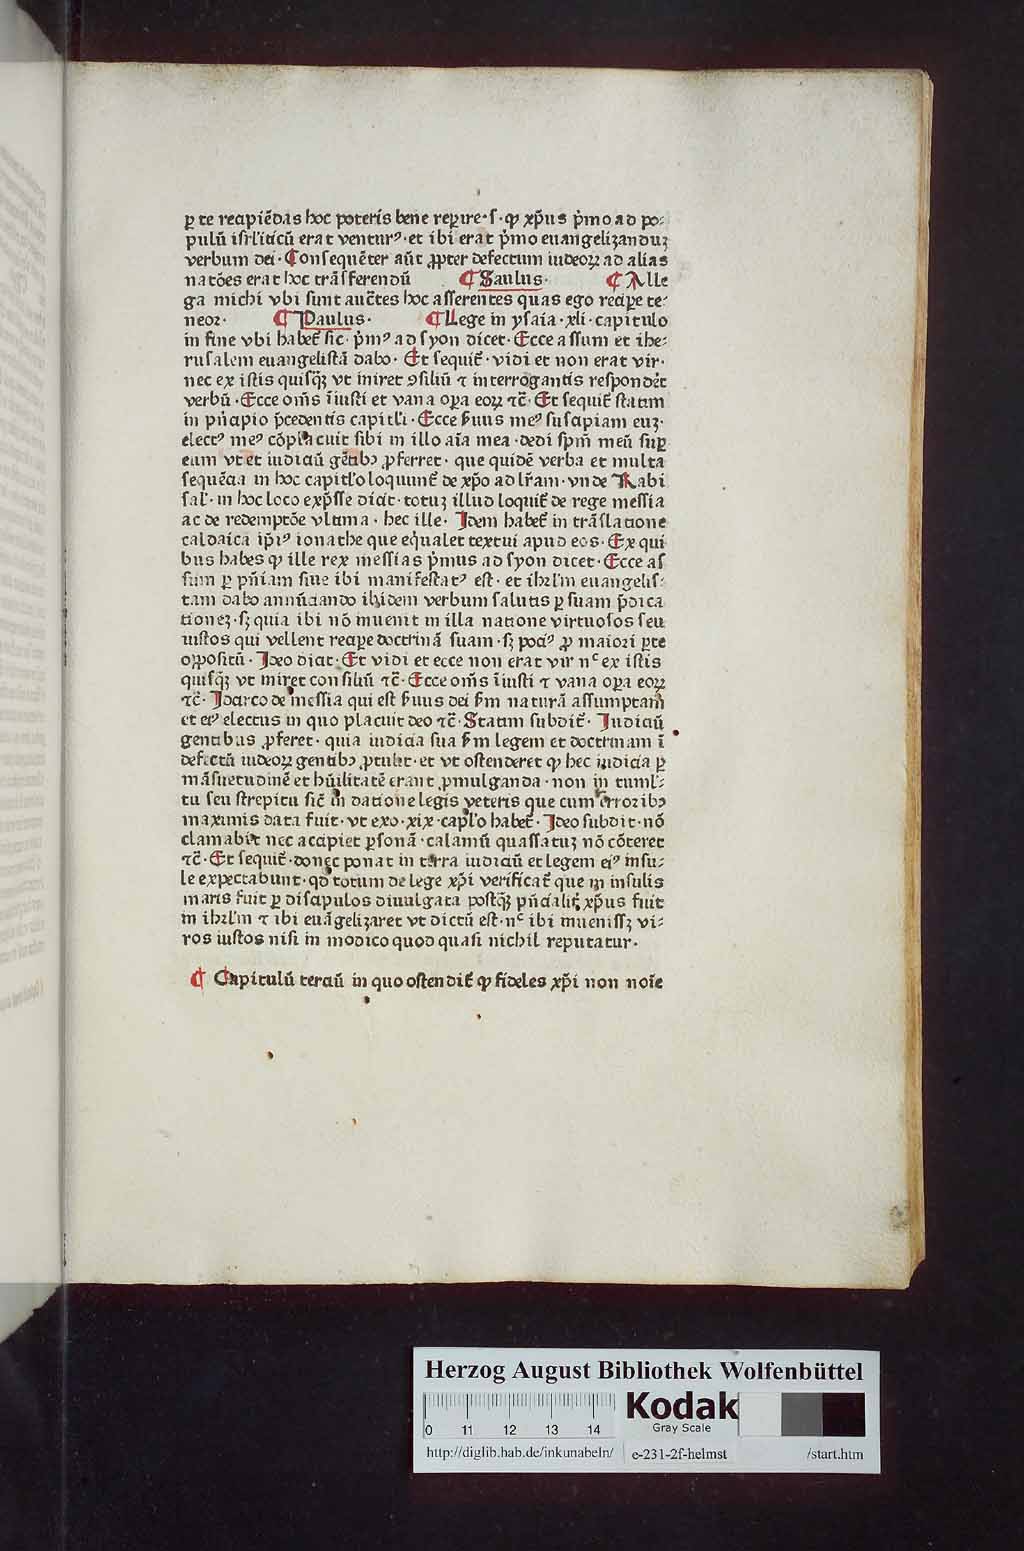 ꝑ te recipiēdas hoc poteris bene reꝑire · s · ꝙ xp̄us pͥmo ad po⸗
pulū iſrl̓iticū erat venturꝰ · et ibi erat pͥmo euangelizanduꝫ
verbum dei · Conſequēter aūt ꝓpter defectum iudeoꝝ ad alias
natōes erat hoc trāſferendū ¶ Saulus · ¶ Alle
ga michi vbi ſunt auc̄tes hoc aſſerentes quas ego reciꝑe te⸗
neor · ¶ Paulus · ¶ Lege in yſaia · xli · capitulo
in fine vbi habet̄ ſic · pͥmꝰ ad ſyon dicet · Ecce aſſum et ihe⸗
ruſalem euangeliſtā dabo · Et ſequit̄ · vidi et non erat vir ·
nec ex iſtis quiſqꝫ vt iniret ꝯſiliū ⁊ interrogantis reſpondēt
verbū · Ecce om̄s īiuſti et vana oꝑa eoꝝ ⁊c̄ · Et ſequit̄ ſtatim
in pͥncipio p̄cedentis capitl̓i · Ecce ẜuus meꝰ ſuſcipiam euꝫ ·
electꝰ meꝰ cōplacuit ſibi in illo aīa mea · dedi ſpm̄ meū ſuꝑ
eum vt et iudiciū gētibꝫ ꝓferret · que quidē verba et multa
ſequēcia in hoc capitl̓o loquunt̄ de xp̄o ad lr̄am · vnde Rabi
ſal̓ · in hoc loco exp̄ſſe dicit · totuꝫ illud loquit̄ de rege meſſia
ac de redemptōe vltima · hec ille · Idem habet̄ in trāſlatione
caldaica ip̄iꝰ ionathe que eq̇ualet textui apud eos · Ex qui
bus habes ꝙ ille rex meſſias pͥmus ad ſyon dicet · Ecce aſ
ſum ꝑ pn̄iam ſiue ibi manifeſtatꝰ eſt · et ihrl̓m euangeliſ⸗
tam dabo annūciando ibidem verbum ſalutis ꝑ ſuam p̄dica
tioneꝫ · ſꝫ quia ibi nō inuenit in illa natione virtuoſos ſeu
iuſtos qui vellent reciꝑe doctrinā ſuam · ſꝫ pociꝰ ꝓ maiori ꝑte
oppoſitū · Ideo dicit · Et vidi et ecce non erat vir nᶜ ex iſtis
quiſqꝫ vt iniret conſiliū ⁊c̄ · Ecce om̄s īiuſti ⁊ vana oꝑa eoꝝ
⁊c̄ · Idcirco de meſſia qui eſt ẜuus dei ẜm naturā aſſumptam
et eiꝰ electus in quo placuit deo ⁊c̄ · Statim ſubdit̄ · Iudiciū
gentibus ꝓferet · quia iudicia ſua ẜm legem et doctrinam ī
defectū iudeoꝝ gentibꝫ ꝓtulit · et vt oſtenderet ꝙ hec iudicia ꝑ
māſuetudinē et hūilitatē erant ꝓmulganda · non in tumul⸗
tu ſeu ſtrepitu ſic̄ in datione legis veteris que cum terroribꝫ
maximis data fuit · vt exo · xix · capl̓o habet̄ · Ideo ſubdit · nō
clamabit nec accipiet ꝑſonā · calamū quaſſatuꝫ nō cōteret
⁊c̄ · Et ſequit̄ · donec ponat in terra iudiciū et legem eiꝰ inſu⸗
le expectabunt · qd̓ totum de lege xp̄i verificat̄ que in inſulis
maris fuit ꝑ diſcipulos diuulgata poſtqꝫ pͥncialit̓ xp̄us fuit
in ihrl̓m ⁊ ibi euāgelizaret vt dictū eſt · nᶜ ibi inueniſſꝫ vi⸗
ros iuſtos niſi in modico quod quaſi nichil reputatur ·
¶ Capitulū terciū in quo oſtendit̄ ꝙ fideles xp̄i non noīe
Herzog August Bibliothek Wolfenbüttel
0 11 12 13 14
Kodak
Gray Scale
http://diglib.hab.de/inkunabeln/ e-231-2f-helmst /start.htm